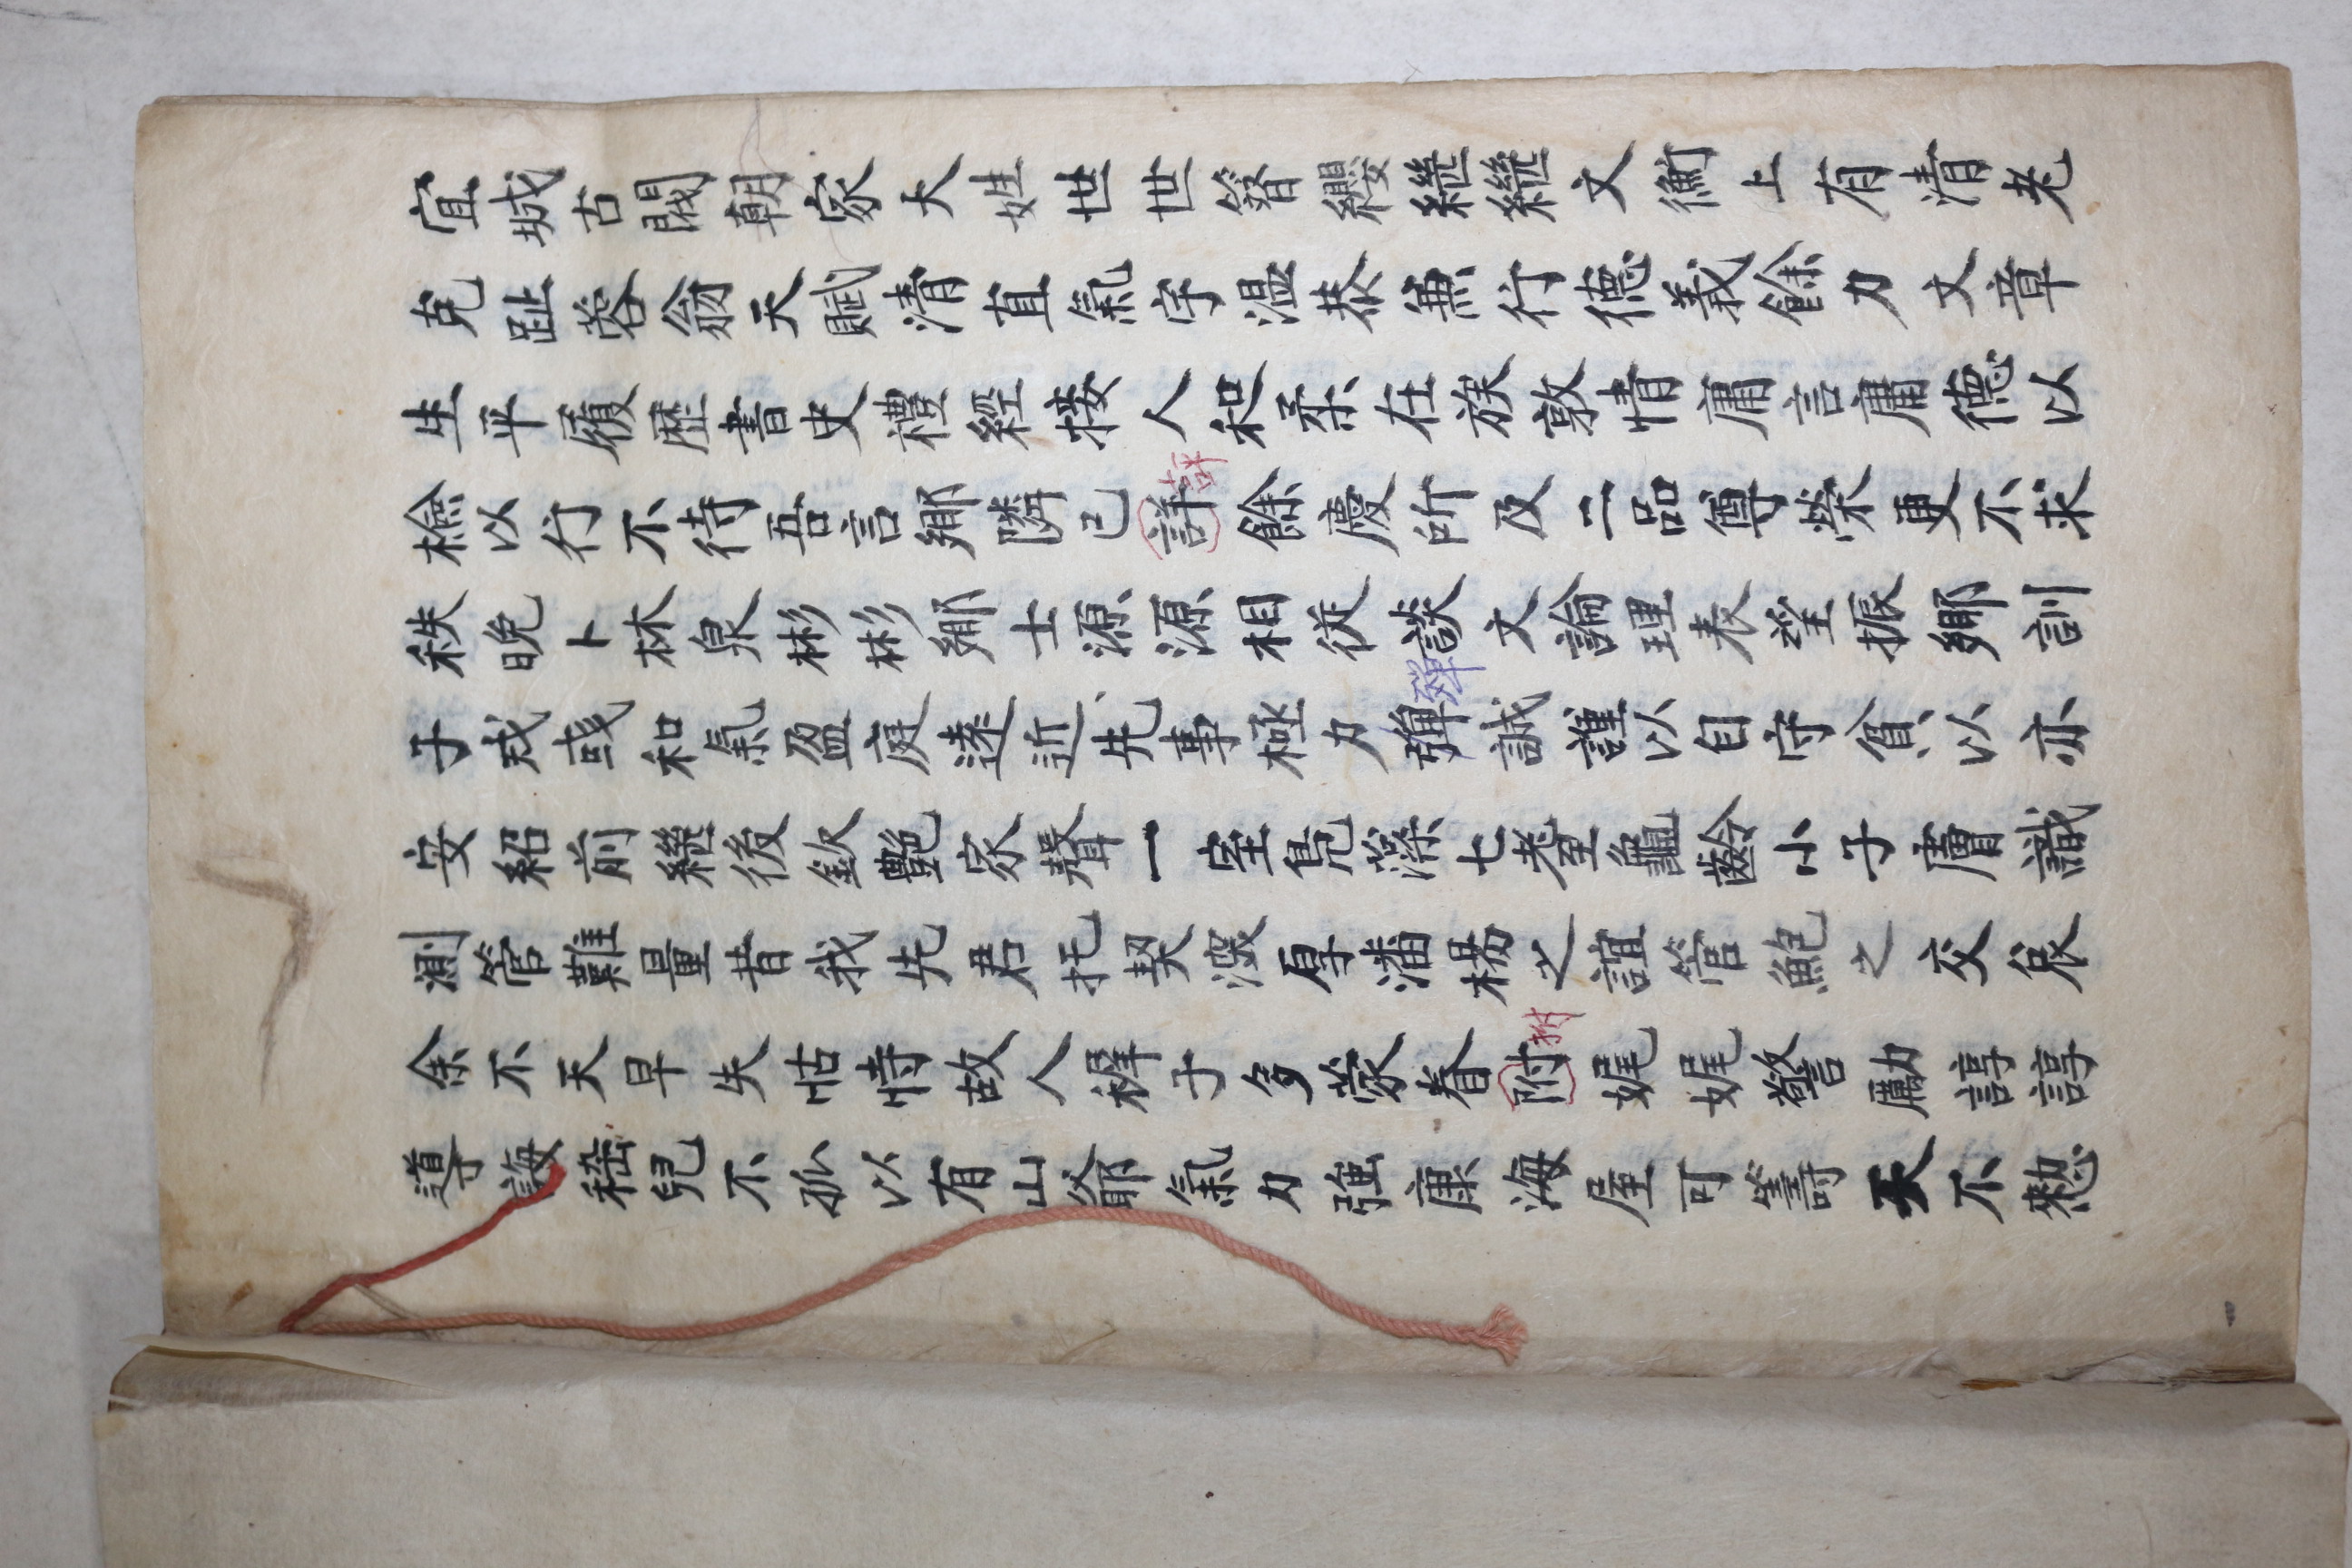 宜城古閥朝家大姓世世簪纓繼繼文衡上有清老
克趾蓉翁天賦清直氣宇温恭兼行德義餘力文章
生平履歷書史禮經接人和柔在族敦情庸言庸德以
檢以行不待吾言鄕隣已詳評餘慶所及二品尊榮更不求
秩晩卜林泉彬彬鄕士源源相從談文論理表望振鄕訓
子戎彧和氣盈庭遠近先事極力彈殫誠謹以自守貧以亦
安紹前繼後欽艶家聲一室鳧藻七耋龜齡小子膚識
測管難量昔我先君托契深厚潘楊之誼管鮑之交哀
余不天早失怙恃故人穉子多蒙眷附拊娓娓警勵諄諄
導誨嵇兒不孤以有山爺氣力強康海屋可籌天不憗